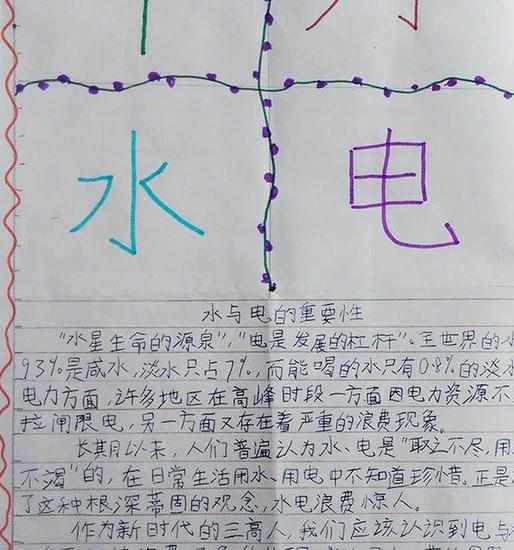 水 电
水与电的重要性
"水星生命的源泉","电是发展的杠杆"。全世界的水
93%是咸水,淡水只占7%,而能喝的水只有0.8%的淡水
电力方面,许多地区在高峰时段一方面因电力资源不
拉闸限电,另一方面又存在着严重的浪费现象。
长期以来,人们普遍认为水、电是"取之不尽,用
不竭"的,在日常生活用水、用电中不知道珍惜。正是
了这种根深蒂固的观念,水电浪费惊人。
作为新时代的三高人,我们应该认识到电与